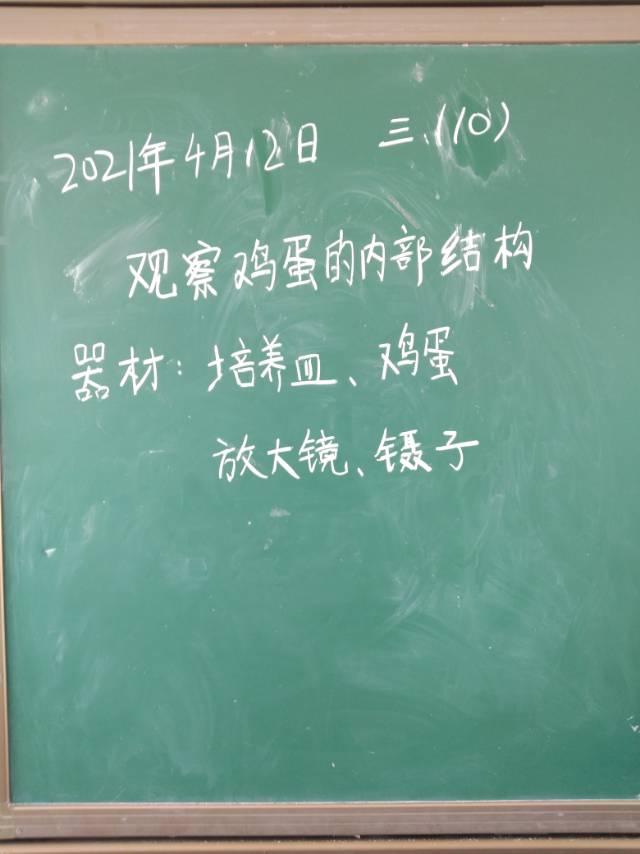 2021年4月12日 三、(10)
观察鸡蛋的内部结构
器材：培养皿、鸡蛋
放大镜、镊子